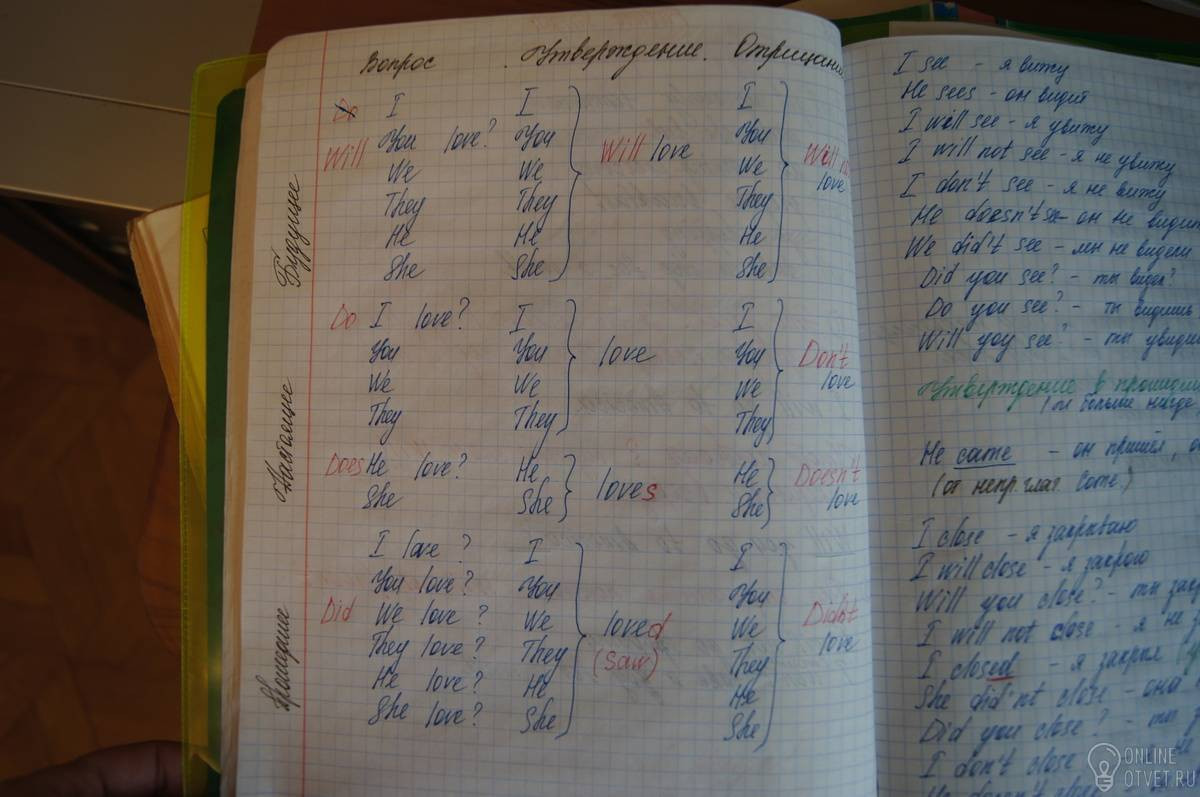 Вопрос Утверждение. Отрицание
Будущее
Do I I I
Will You love? You Will love You Will not
We We We love
They They They
He He He
She She She
Настоящее
Do I love? I I
You You love You Don't
We We We love
They They They
Does He love? He loves He Doesn't
She She She love
Прошедшее
I love? I I
You love? You You
Did We love? We loved We Didn't
They love? They (saw) They love
He love? He He
She love? She She
I see - я вижу
He sees - он видит
I will see - я увижу
I will not see - я не увижу
I don't see - я не вижу
He doesn't see - он не видит
We did't see - мы не видели
Did you see? - ты видел?
Do you see? - ты видишь
Will yoy see? - ты увидишь
Утверждение в прошедш
больше нигде
He came - он пришёл,
(от непр. глаг. Come.)
I close - я закрываю
I will close - я закрою
Will you close? - ты закр
I will not close - я не з
I closed - я закрыл
She did not close - она
Did you close? - ты з
I don't close - не
He doesn't close -
ONLINE
OTVET.RU